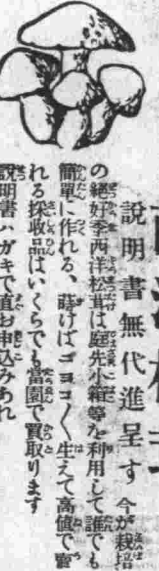 説明書無代進呈す 今が栽培
の絶好季西洋松茸は庭先小箱等を利用して誰でも
簡單に作れる、蒔けばゴヨゴヨ〱生えて高値で賣
れる採收品はいくらでも當園で買取ります
説明書ハガキで直お申込みあれ